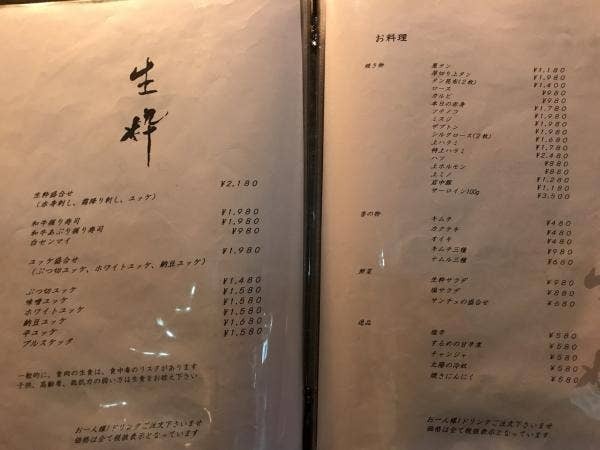 生粋
生粋盛合せ ¥2,180
(赤身刺し、霜降り刺し、ユッケ)
和牛握り寿司 ¥1,980
和牛あぶり握り寿司 ¥1,980
白センマイ ¥980
ユッケ盛合せ ¥1,980
(ぶつ切ユッケ、ホワイトユッケ、納豆ユッケ)
ぶつ切ユッケ ¥1,480
味噌ユッケ ¥1,580
ホワイトユッケ ¥1,580
納豆ユッケ ¥1,580
平ユッケ ¥1,680
ブルスケッタ ¥1,580
一般的に、食肉の生食は、食中毒のリスクがあります
子供、高齢者、抵抗力の弱い方は生食をお控え下さい
お一人様1ドリンクご注文下さいませ
価格は全て税抜表示となっています
お料理
焼き物
黒タン ¥1,180
厚切り上タン ¥1,980
タン昆布(2枚) ¥1,400
ロース ¥980
カルビ ¥980
本日の赤身 ¥1,780
¥1,980
ミスジ ¥1,980
ザブトン ¥1,980
シルクロース(2枚) ¥1,680
上ハラミ ¥1,780
特上ハラミ ¥2,480
ハツ ¥880
上ホルモン ¥880
上ミノ ¥1,280
¥1,180
サーロイン100g ¥3,500
キムチ ¥480
カクテキ ¥480
オイキ ¥480
キムチ三種 ¥980
ナムル三種 ¥680
野菜
生粋サラダ ¥980
塩サラダ ¥880
サンチュの盛合せ ¥680
逸品
塩辛 ¥580
するめの甘辛煮 ¥580
チャンジャ ¥580
¥580
焼きにんにく ¥580
お一人様1ドリンクご注文下さいませ
価格は全て税抜表示となっています